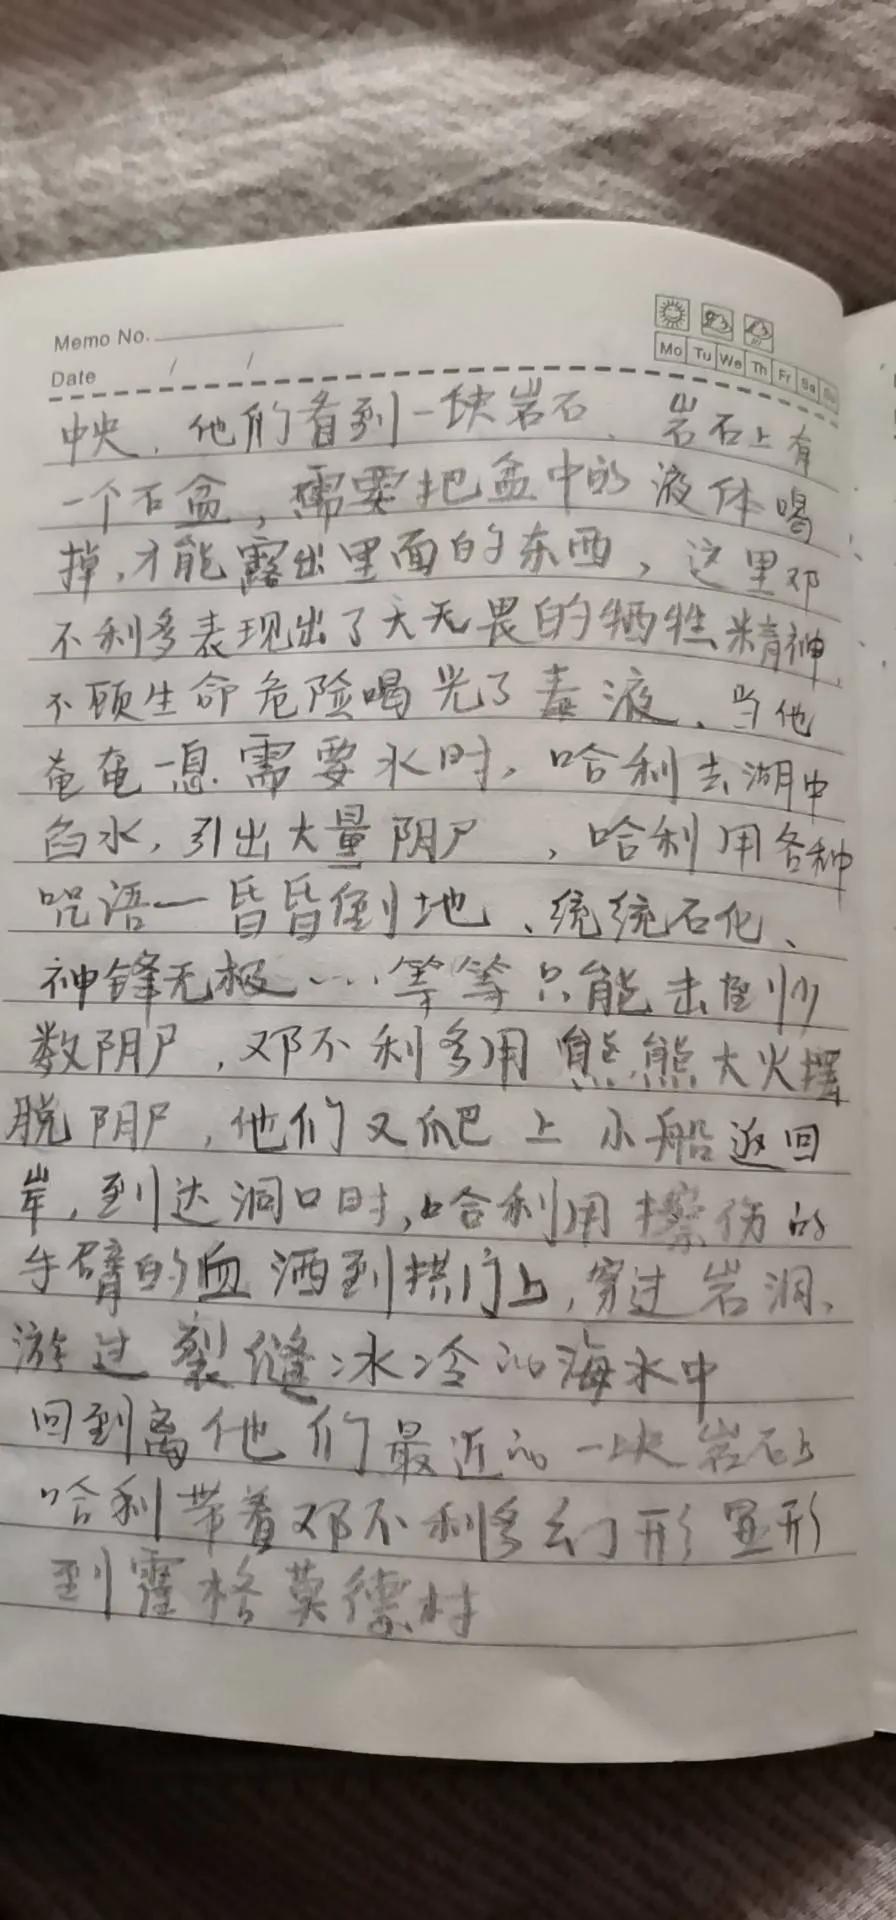 Memo No.
Date / /
Mo Tu We Th Fr Sa Su
中央，他们看到一块岩石、岩石上有
一个石盆，需要把盆中的液体喝
掉，才能露出里面的东西，这里邓
不利多表现出了大无畏的牺牲精神，
不顾生命危险喝光了毒液、当他
奄奄一息需要水时，哈利去湖中
舀水，引出大量阴尸，哈利用各种
咒语一昏昏倒地、统统石化、
神锋无极……等等只能击退少
数阴尸，邓不利多用熊熊大火摆
脱阴尸，他们又爬上小船返回
岸，到达洞口时，哈利用擦伤的
手臂的血洒到拱门上，穿过岩洞、
游过裂缝冰冷的海水中
回到离他们最近的一块岩石上
哈利带着邓不利多幻形显形
到霍格莫德村